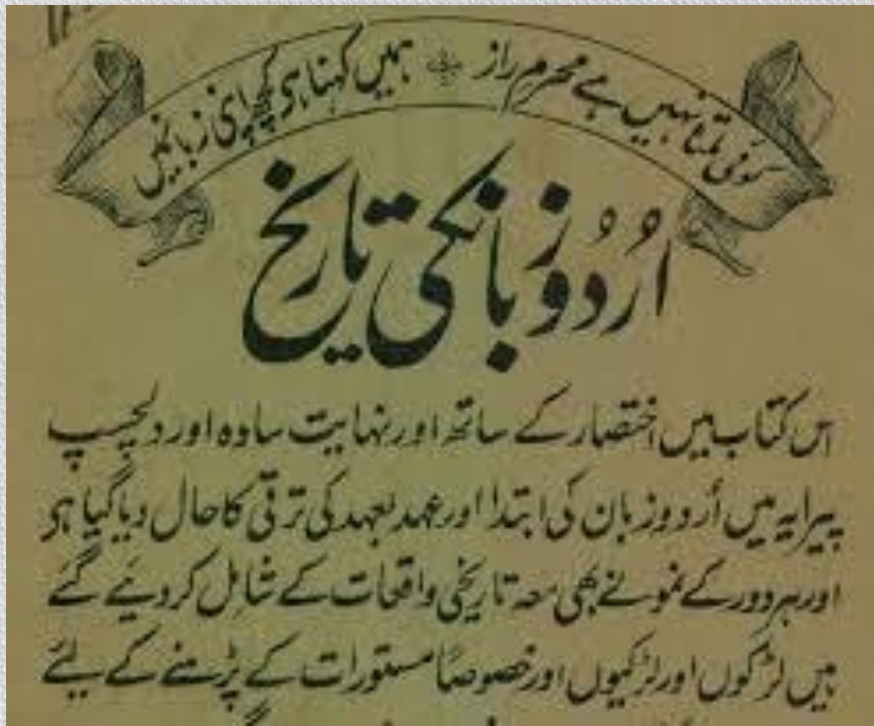 کوئی ملتا نہیں ہے محرم راز ہمیں کہنا ہی کچھ اپنی زبانمیں
اُردو زبانکی تاریخ
اس کتاب میں اختصار کے ساتھ اور نہایت سادہ اور دلچسپ
پیرایہ میں اُردو زبان کی ابتدا اور عہد بعہد کی ترقی کا حال دیا گیا ہی
اور ہر دور کے نمونے بھی معہ تاریخی واقعات کے شامل کردیئے گئے
ہیں لڑکوں اور لڑکیوں اور خصوصاً مستورات کے پڑہنے کے لیئے